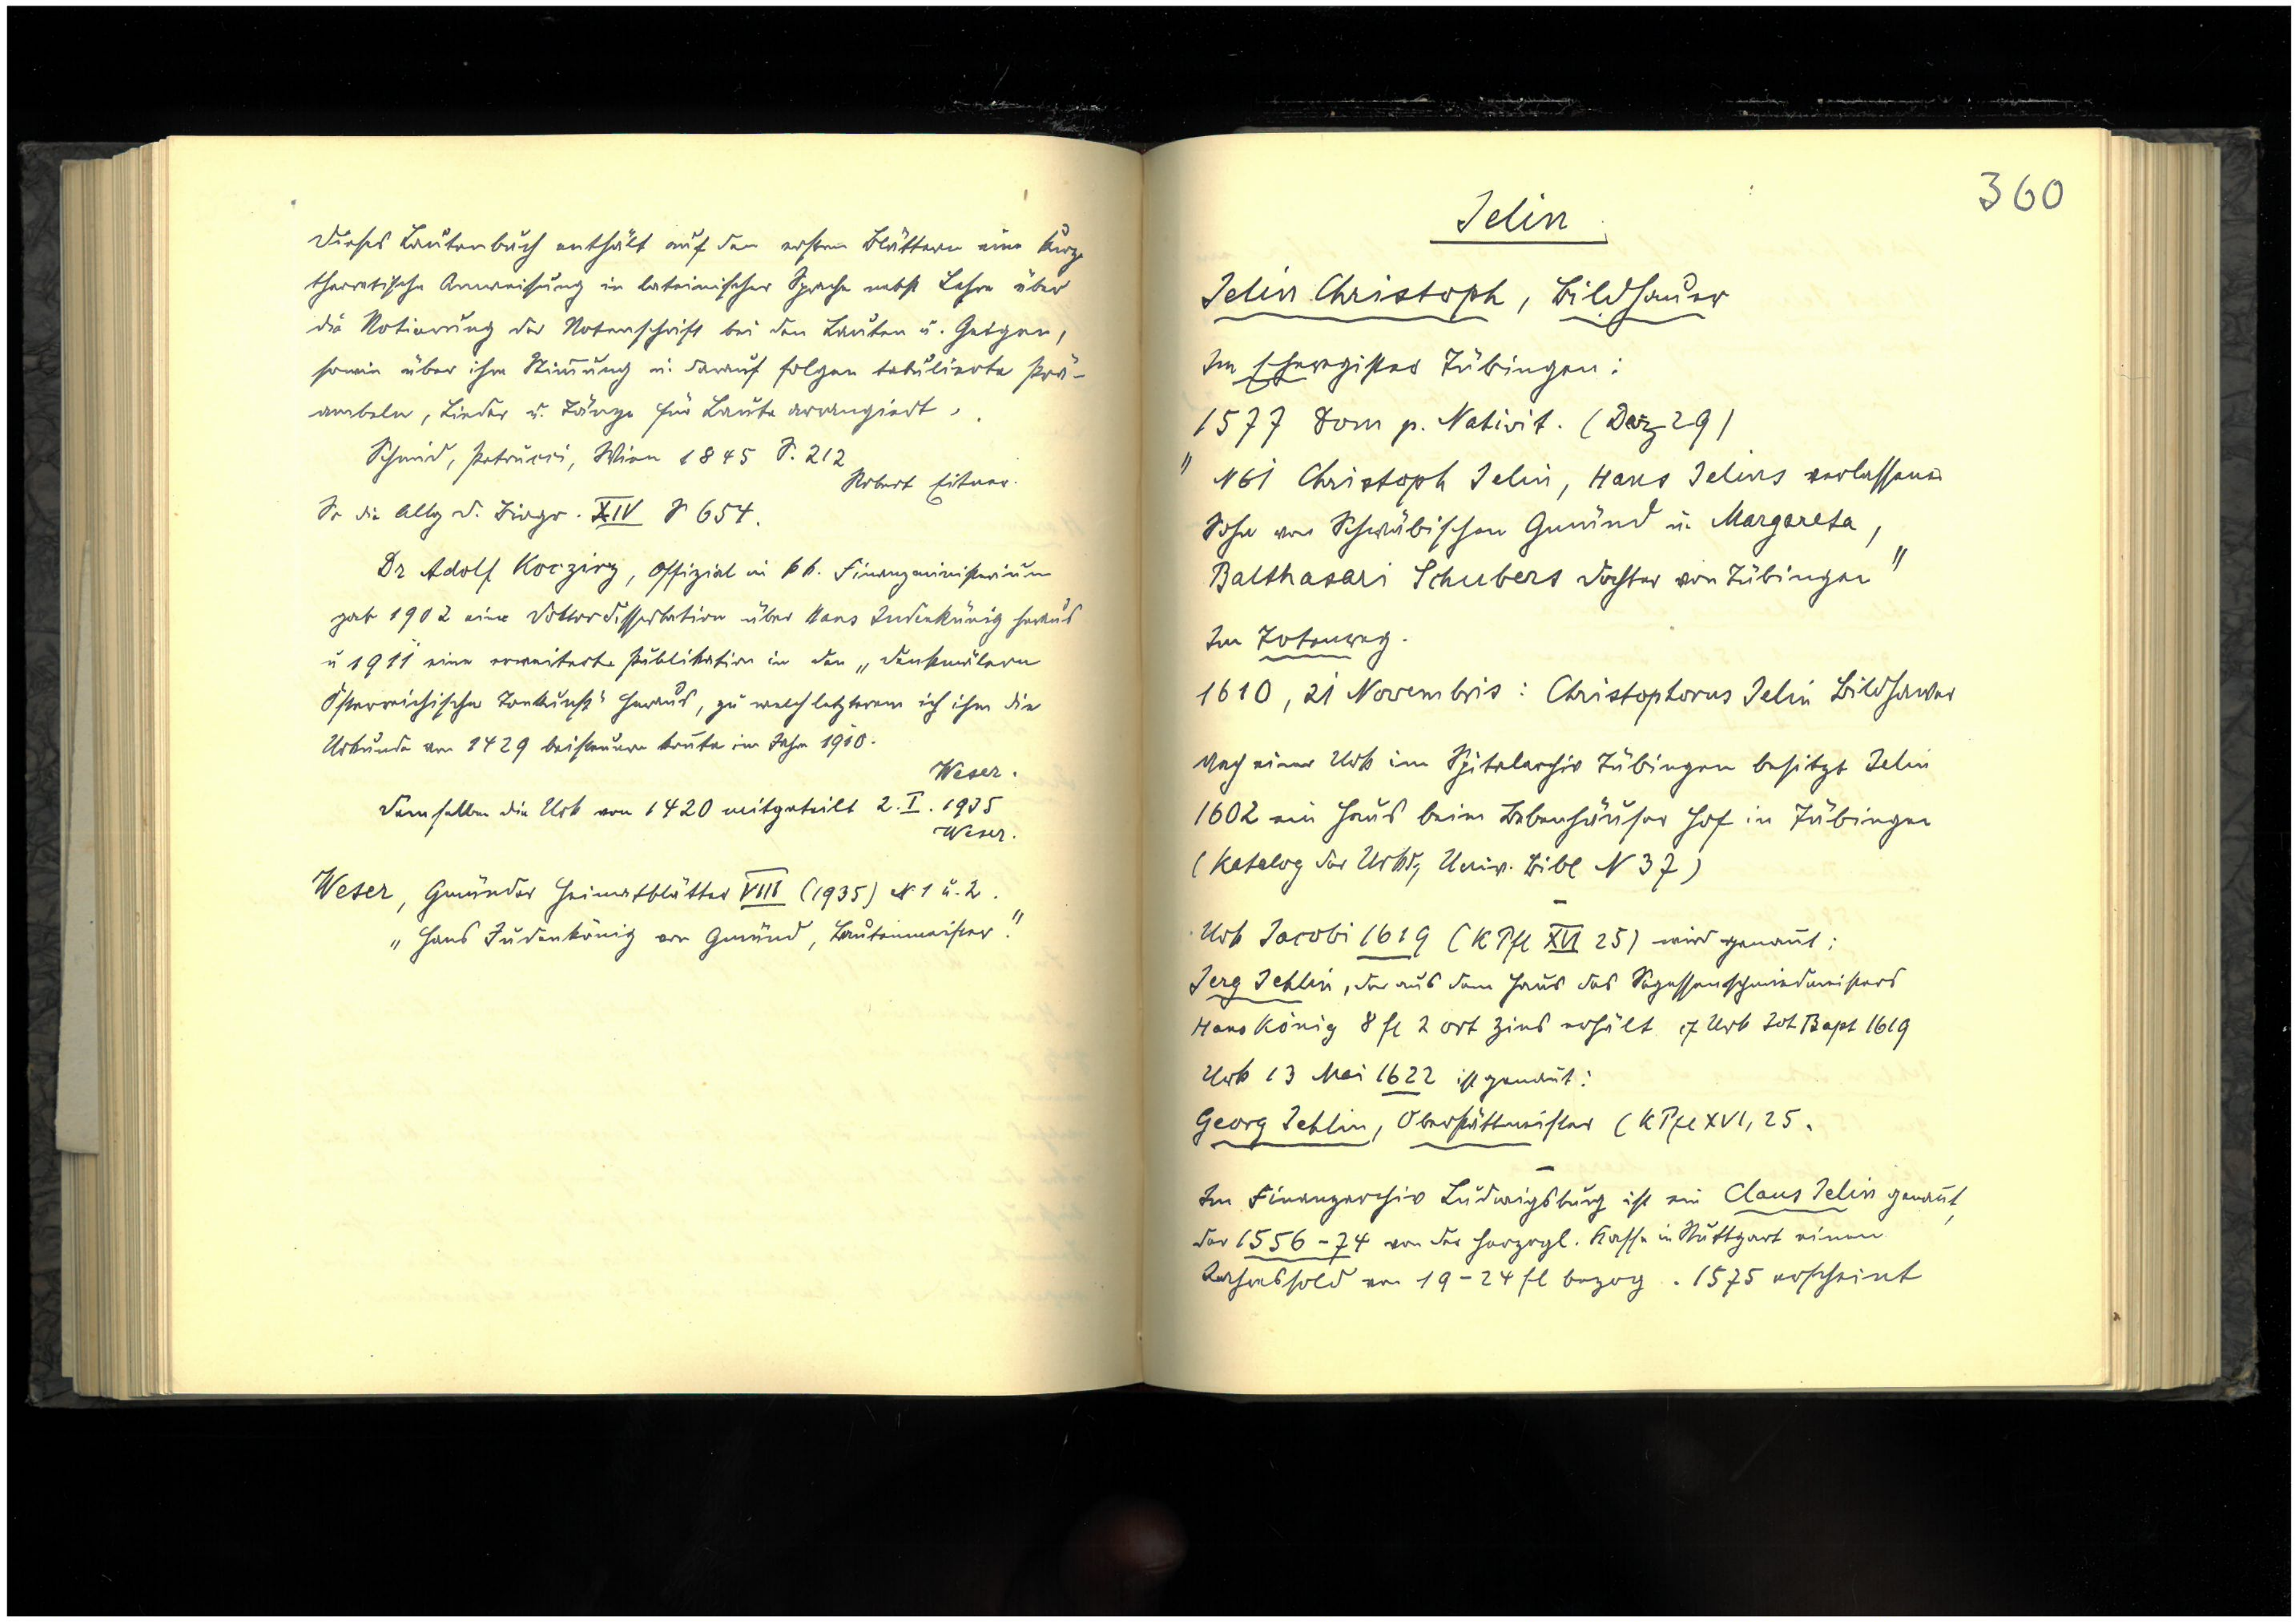 Dieses Lautenbuch enthält auf den ersten Blättern eine kurze
theoretische Anweisung in lateinischer Sprache nebst Lehre über
die Notierung der Notenschrift bei den Lauten u. Geigen,
sowie über ihre Stimmung u. darauf folgen tabulierte Prä-
ambeln, Lieder u. Tänze für Laute arrangiert.
Schmid, Petrucci, Wien 1845 S. 212
Robert Eitner.
So die Allg d. Biogr. XIV S 654.
Dr Adolf Koczirz, Offizial im kk. Finanzministerium
gab 1902 eine Doktordissertation über Hans Judenkünig heraus
u 1911 eine erweiterte Publikation in den „Denkmälern
Österreichische Tonkunst" heraus, zu welch letzterem ich ihm die
Urkunde von 1429 beisteuern konnte im Jahre 1910.
Weser.
Demselben die Urk von 1420 mitgeteilt 2. I. 1935
Weser.
Weser, Gmünder Heimatblätter VIII (1935) N 1 u. 2.
„Hans Judenkönig von Gmünd, Lautenmeister."
360
Jelin
Jelin Christoph, Bildhauer
Im Eheregister Tübingen:
1577 Dom p. Nativit. (Dez 29)
" N61 Christoph Jelin, Hans Jelins verlassener
Sohn von Schwäbischen Gmünd u. Margareta,
Balthasari Schubers Dochter von Tübingen"
Im Totenreg.
1610, 21 Novembris: Christophorus Jelin Bildhawer
Nach einer Urk im Spitalarchiv Tübingen besitzt Jelin
1602 ein Haus beim Bebenhäuser Hof in Tübingen
(Katalog der Urkd, Univ. Bibl N 37)
Urk Jacobi 1619 (K Pfl XVI 25) wird genannt:
Jerg Jehlin, der aus dem Haus des Segessenschmiedmeisters
Hans König 8 fl 2 ort Zins erhält cf Urk Joh Bapt 1619
Urk 13 Mai 1622 ist genannt:
Georg Jehlin, Oberstättmeister (K Pfl XVI, 25.
Im Finanzarchiv Ludwigsburg ist ein Claus Jelin genannt,
der 1556-74 von der herzogl. Kasse in Stuttgart einen
Jahressold von 19-24 fl bezog. 1575 erscheint